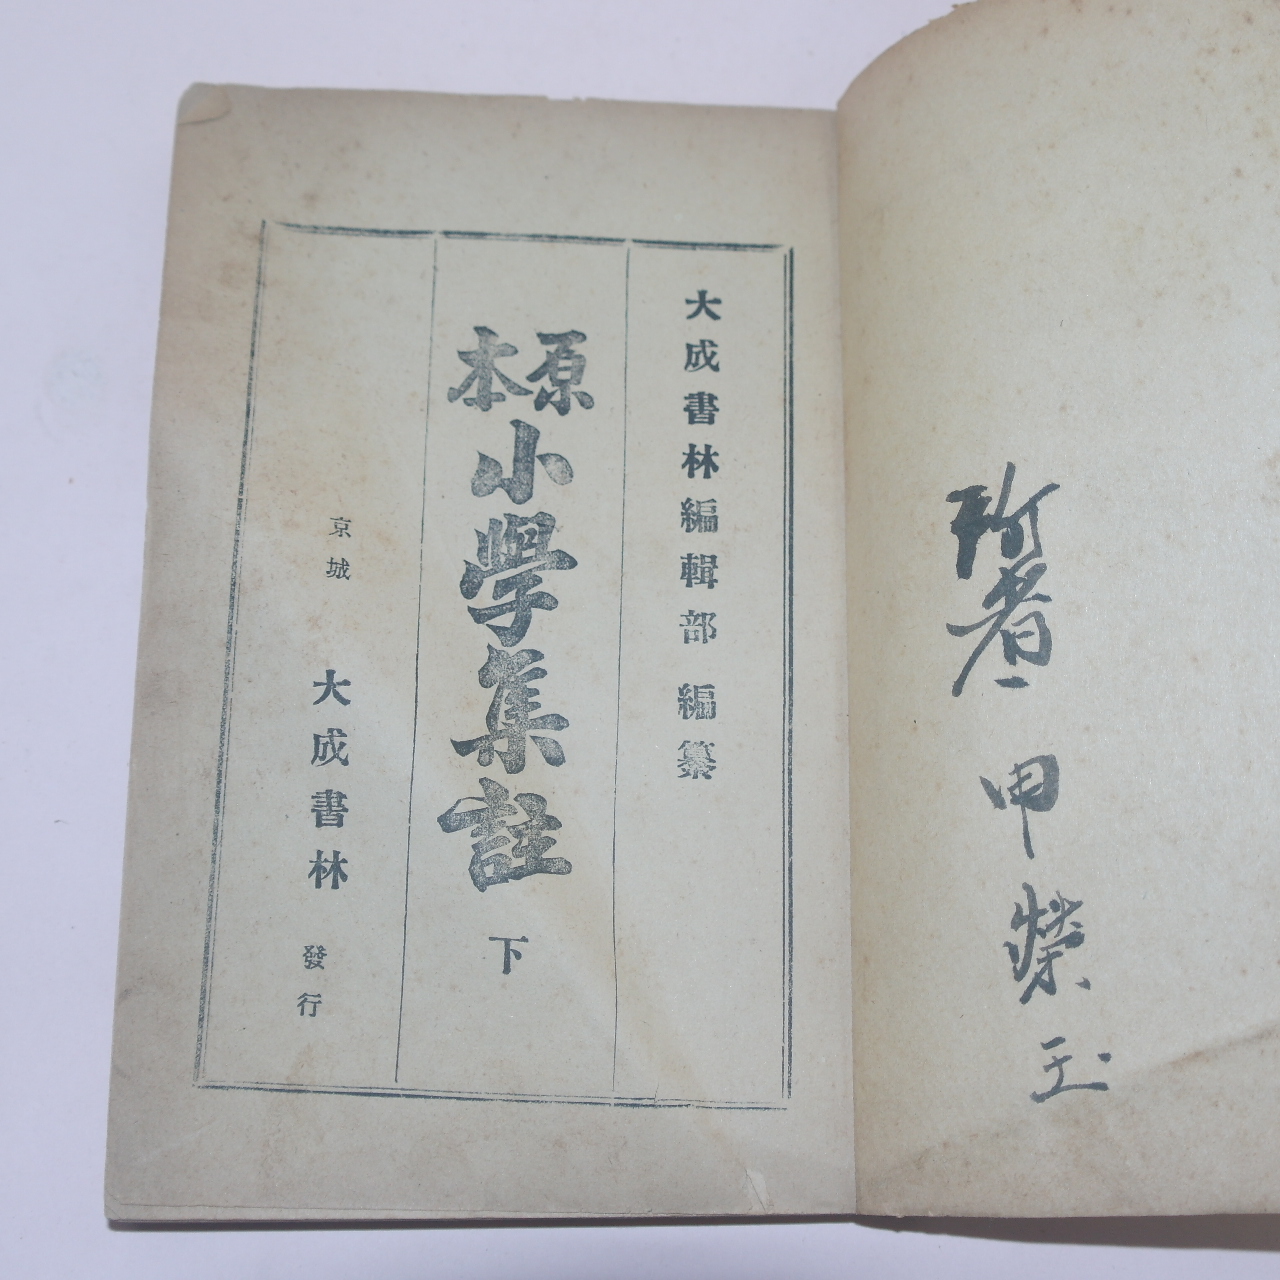 者
申榮玉
大成書林編輯部 編纂
原本小學集註 下
京城 大成書林 發行